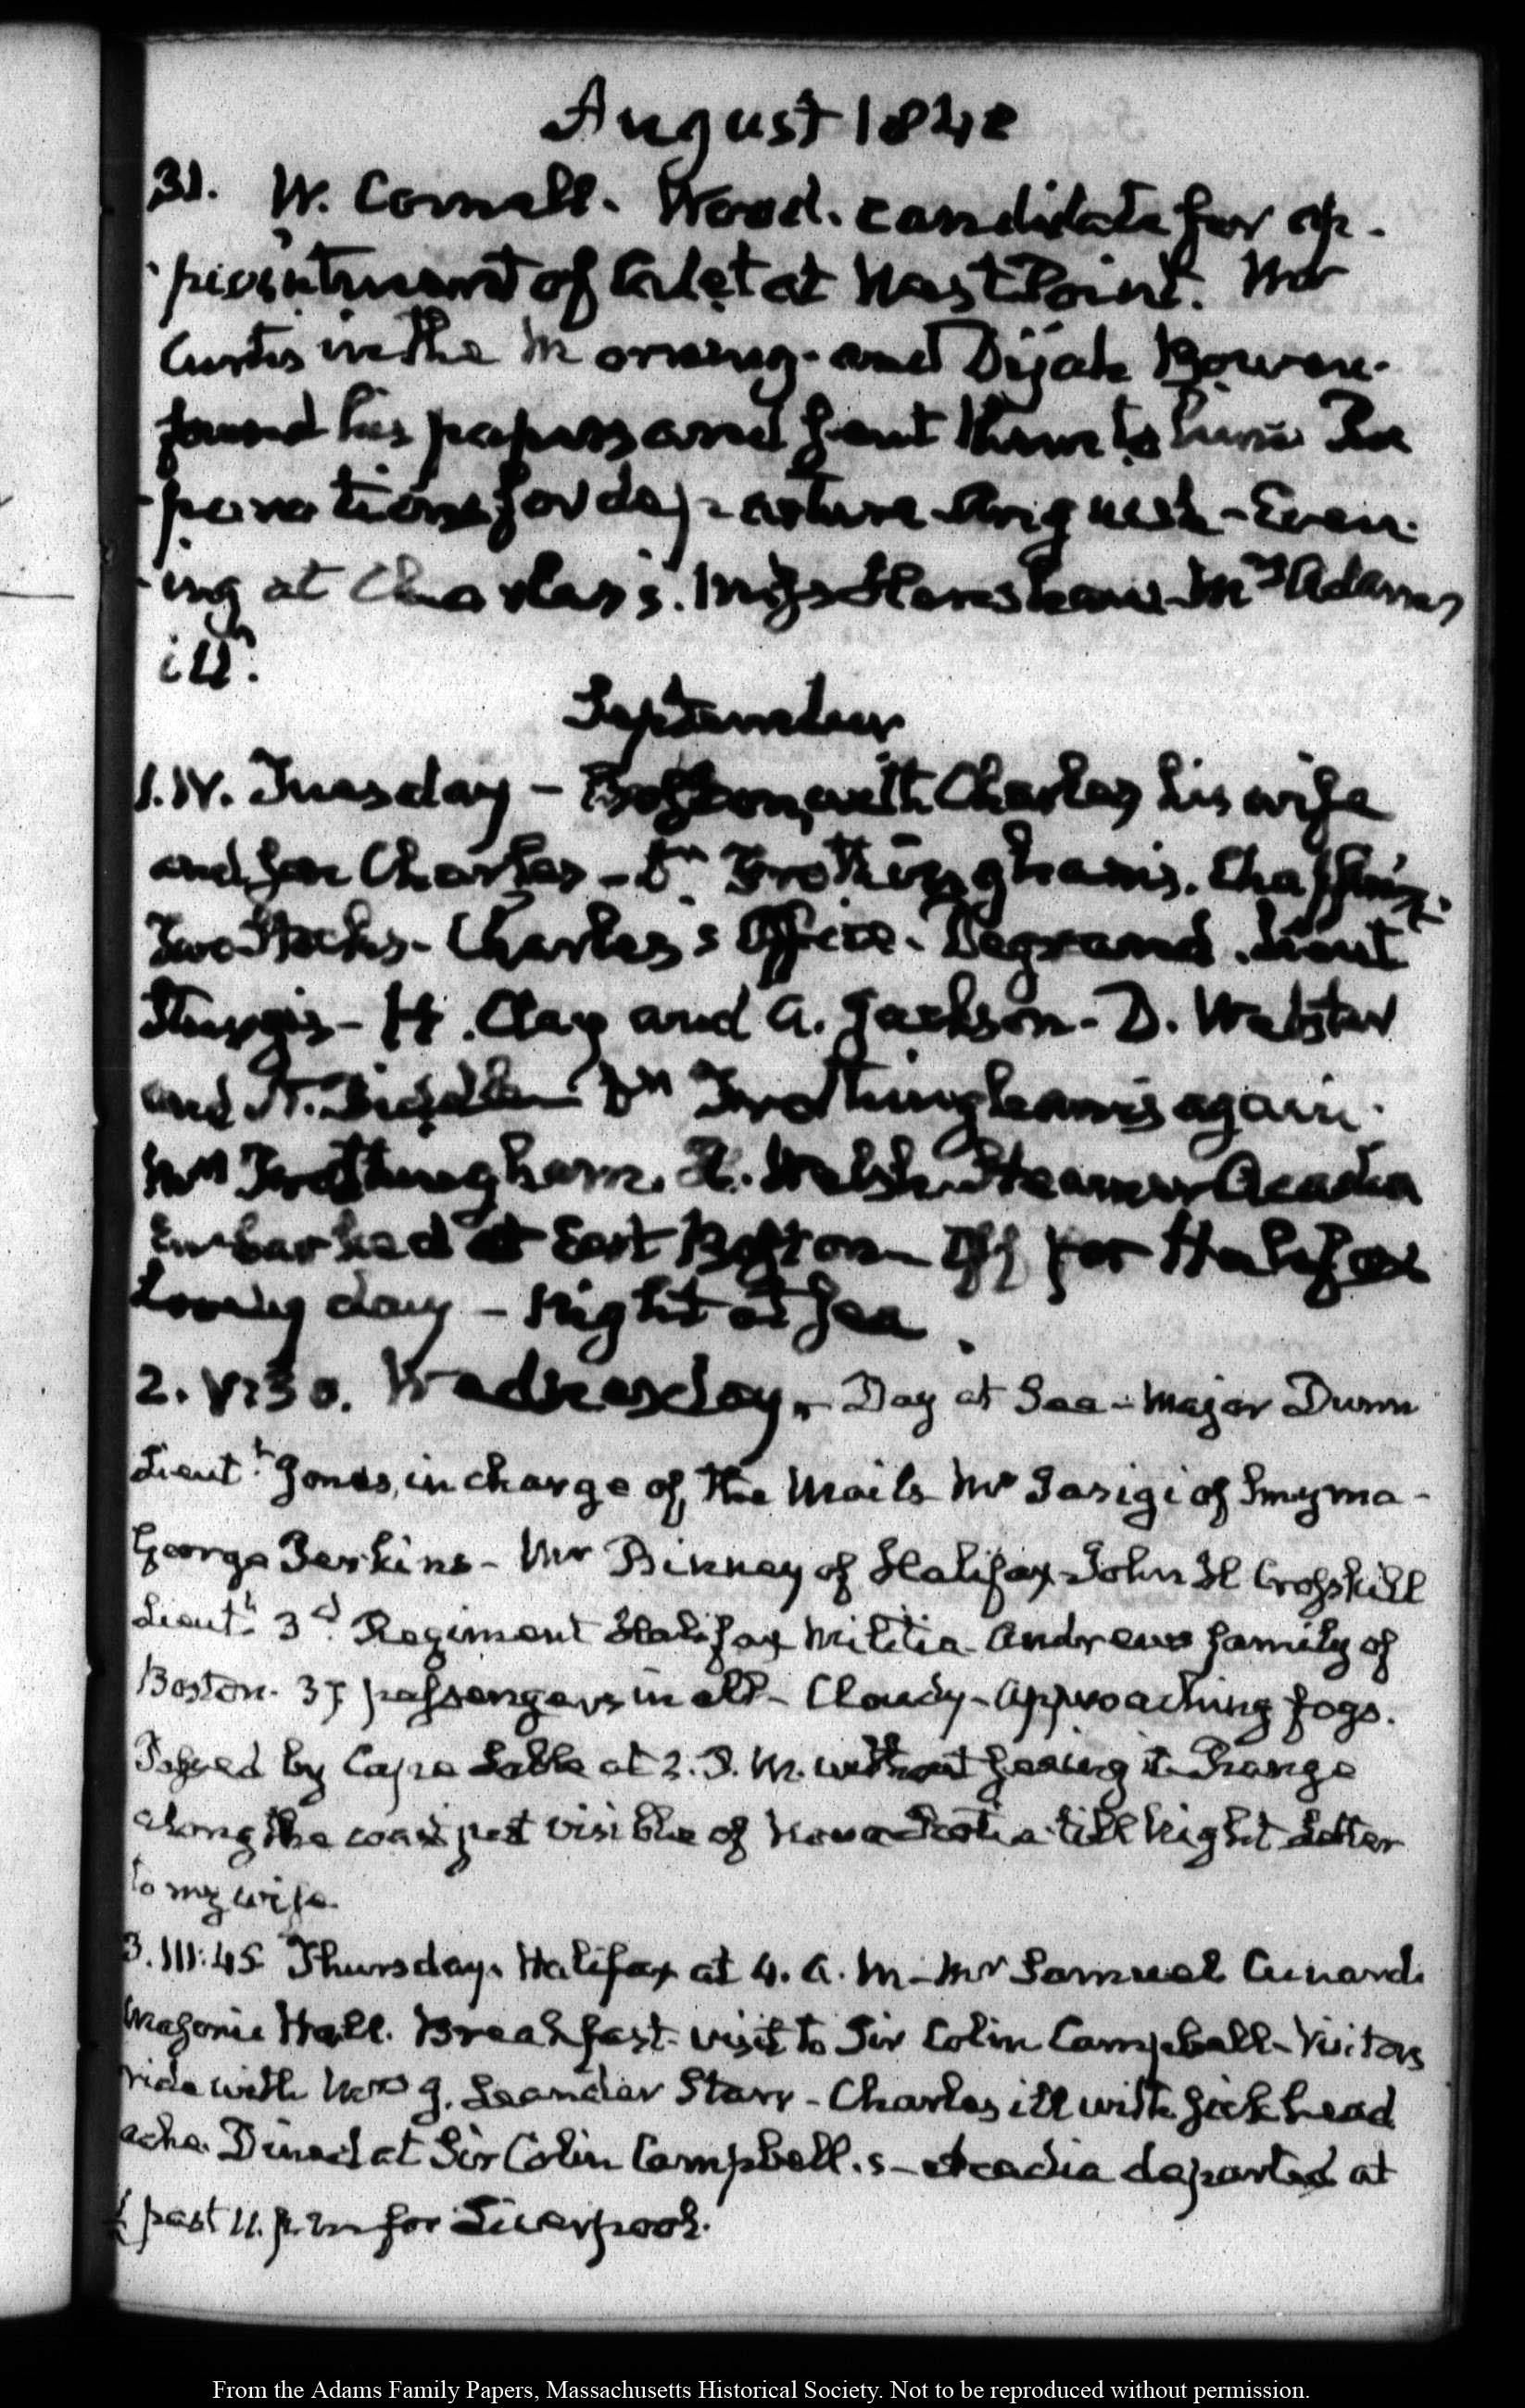 August 1840
31. W. Cornell. Wood. candidate for ap-
-pointment of Cadet at West Point. Mr
Curtis in the Morning and Dijah Bowen.
found his papers and sent them to him Pre
-parations for departure Anguish - Even-
-ing at Charles's. Miss Henshaw Mrs Adams
ill.
September
1. IV. Tuesday - Boston, with Charles his wife
and son Charles - Dr Frothingham's.
Two Stocks - Charles's Office. Degrand. Lieutt
Sturgis - H. Clay and A. Jackson - D. Webster
and N. Biddle Dr Frothingham's again.
Mr Frothingham. H. Welsh Steamer Acadia
Embarked at East Boston - Off for Halifax
Lovely day - Night at Sea.
2. V:30. Wednesday. Day at Sea - Major Dunn
Lieutt Jones, in charge of the Mails Mr Iasigi of Smyrna -
George Perkins - Mr Binney of Halifax John H Crosskill
Lieutt 3d Regiment Halifax Militia Andrews family of
Boston. 37 passengers in all - Cloudy - approaching fogs.
Passed by Cape Sable at 2. P. M. without seeing it Range
along the coast just visible of Nova-Scotia till Night Letter
to my wife.
3. III:45 Thursday. Halifax at 4. A. M - Mr Samuel Cunard.
Masonic Hall. Breakfast. visit to Sir Colin Campbell - Visitors
ride with Mr J. Leander Starr - Charles ill with sick head
ache. Dined at Sir Colin Campbell.s - Acadia departed at
past 11. p. m for Liverpool.
From the Adams Family Papers, Massachusetts Historical Society. Not to be reproduced without permission.